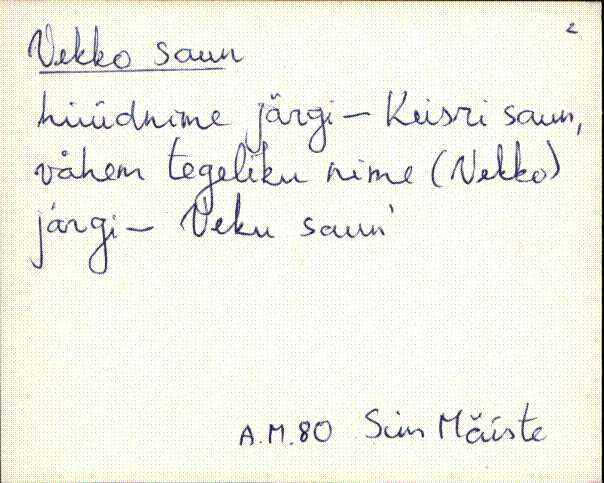 2
Vekko saun
hüüdnime järgi – Keisri saun,
vähem tegeliku nime (Vekko)
järgi – Veku saun
A.M.80 Siim Mäiste